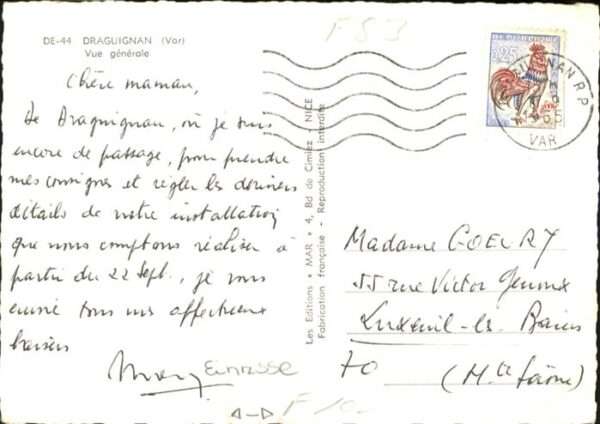 DE-44 DRAGUIGNAN (Var)
Vue générale
Chère maman,
De Draguignan, où je suis
encore de passage, pour prendre
mes consignes et régler les derniers
détails de notre installation
que nous comptons réaliser à
partir du 22 Sept., je vous
envoie tous mes affectueux
baisers
Les Editions * MAR * 4, Bd de Cimiez - NICE
Fabrication française - Reproduction interdite
F 53
0,25
R.P.
VAR
Madame GOEURY
55 rue Victor Genoux
Luxeuil-les-Bains
70 (Hte Saône)